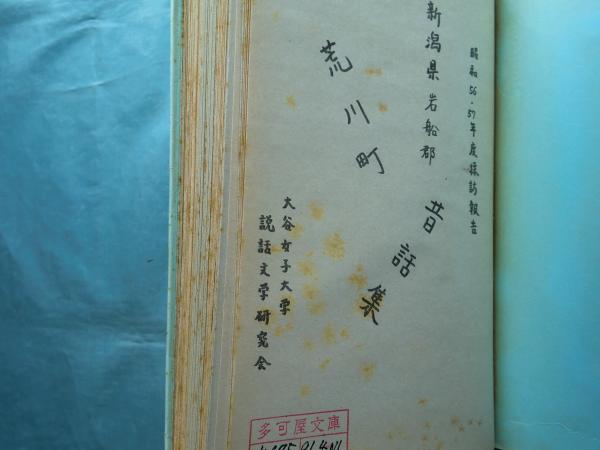 昭和56・57年度採訪報告
新潟県岩船郡
荒川町
昔話集
大谷女子大学
説話文学研究会
多可屋文庫